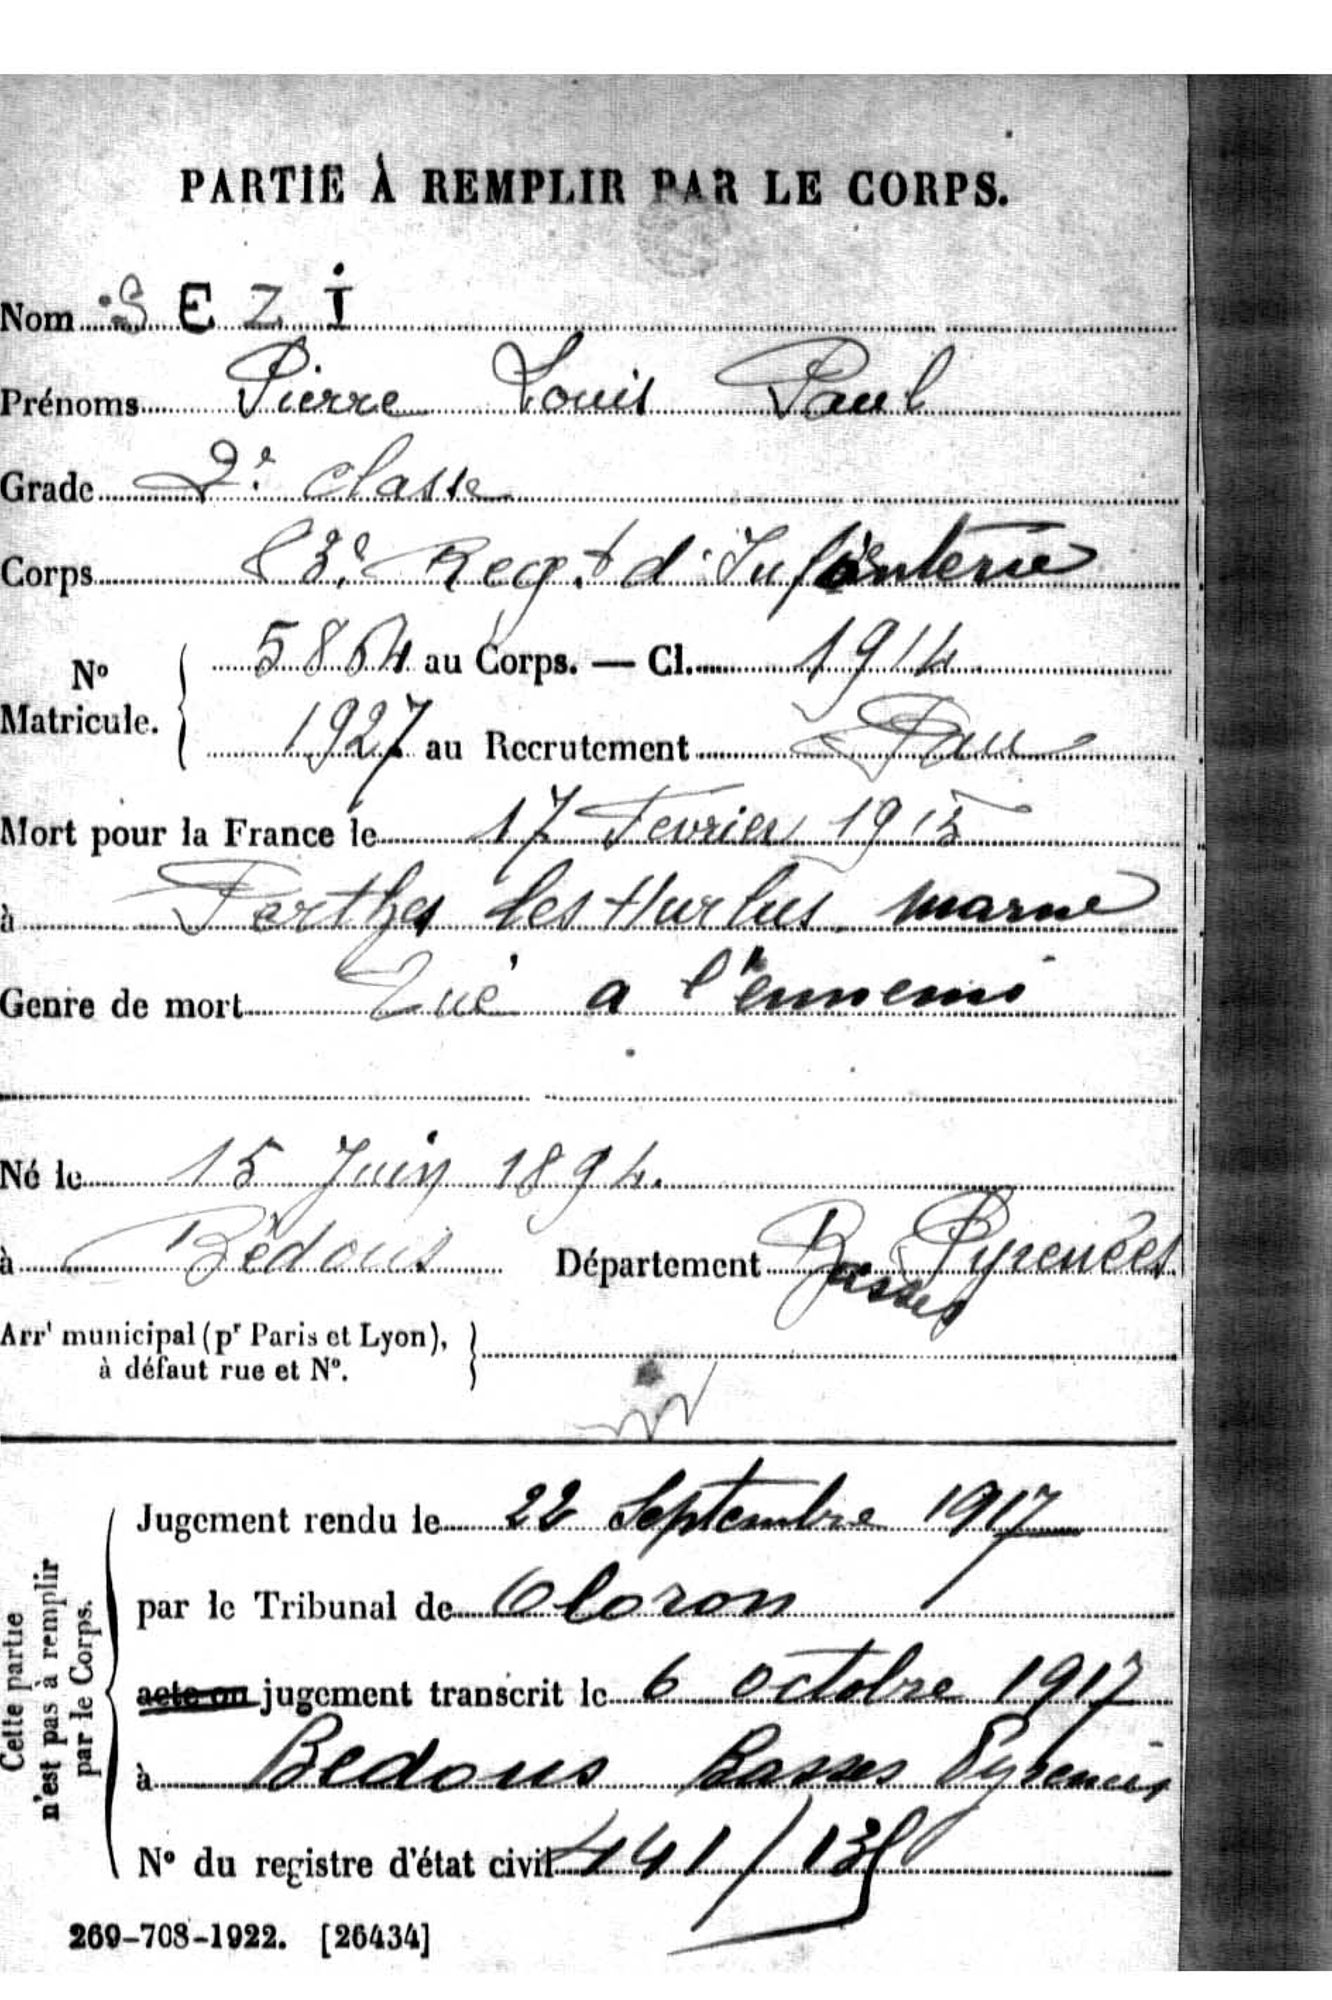 PARTIE À REMPLIR PAR LE CORPS.
Nom SEZI
Prénoms Pierre Louis Paul
Grade 2e classe
Corps 83e Regt d'Infanterie
No Matricule. 5864 au Corps. — Cl. 1914
1927 au Recrutement Pau
Mort pour la France le 17 Fevrier 1915
à Perthes les Hurlus marne
Genre de mort Tué a l'ennemi
Né le 15 Juin 1894.
à Bedous Département Basses Pyrenées
Arrt municipal (pr Paris et Lyon),
à défaut rue et No.
Cette partie
n'est pas à remplir
par le Corps.
Jugement rendu le 22 Septembre 1917
par le Tribunal de Oloron
acte ou jugement transcrit le 6 octobre 1917
à Bedous Basses Pyrenees
No du registre d'état civil 441/
269-708-1922. [26434]